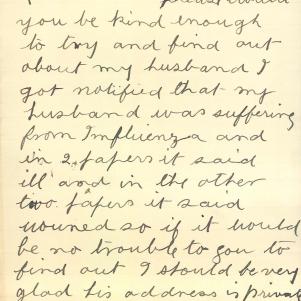 please would
you be kind enough
to try and find out
about my husband I
got notified that my
husband was suffering
from Influenza and
in 2 papers it said
ill and in the other
two papers it said
wouned so if it would
be no trouble to you to
find out I should be very
glad his address is private